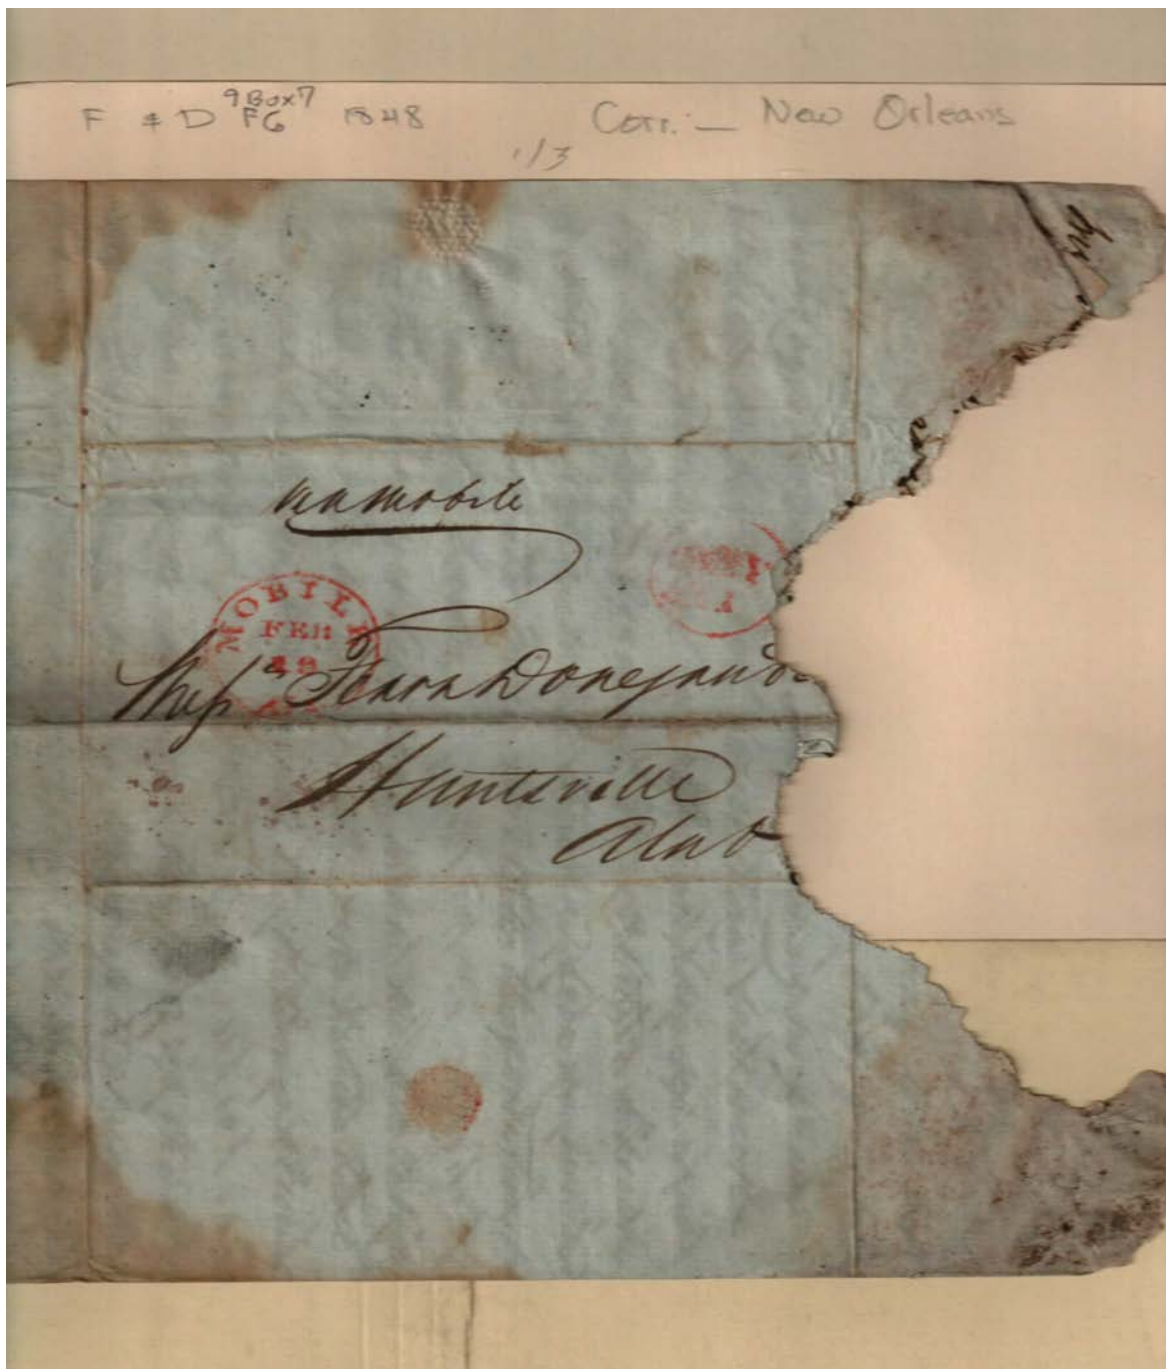 9 Box 7
F & D F6 1848 Corr. — New Orleans
1/3
via mobile
MOBILE
FEB
Messrs Fearn Donegan &
Huntsville
Alab